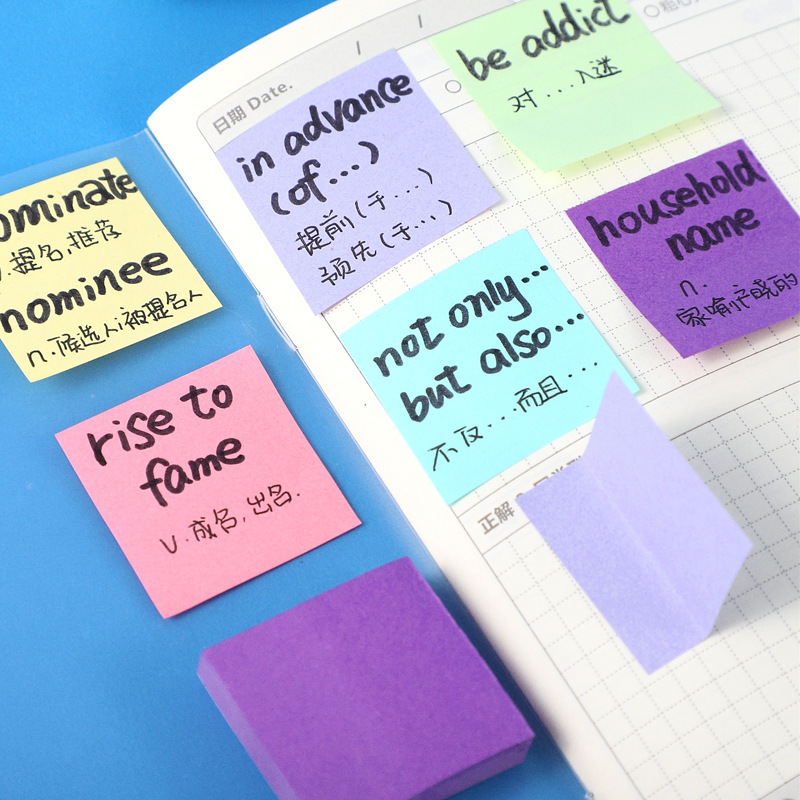 日期 Date.
/ /
in advance
(of...)
提前(于....)
预先(于...)
be addict
对...入迷
ominate
v.提名,推荐
nominee
n.候选人;被提名人
household
name
n.
家喻户晓的
not only...
but also...
不仅...而且...
rise to
fame
v.成名,出名.
正解